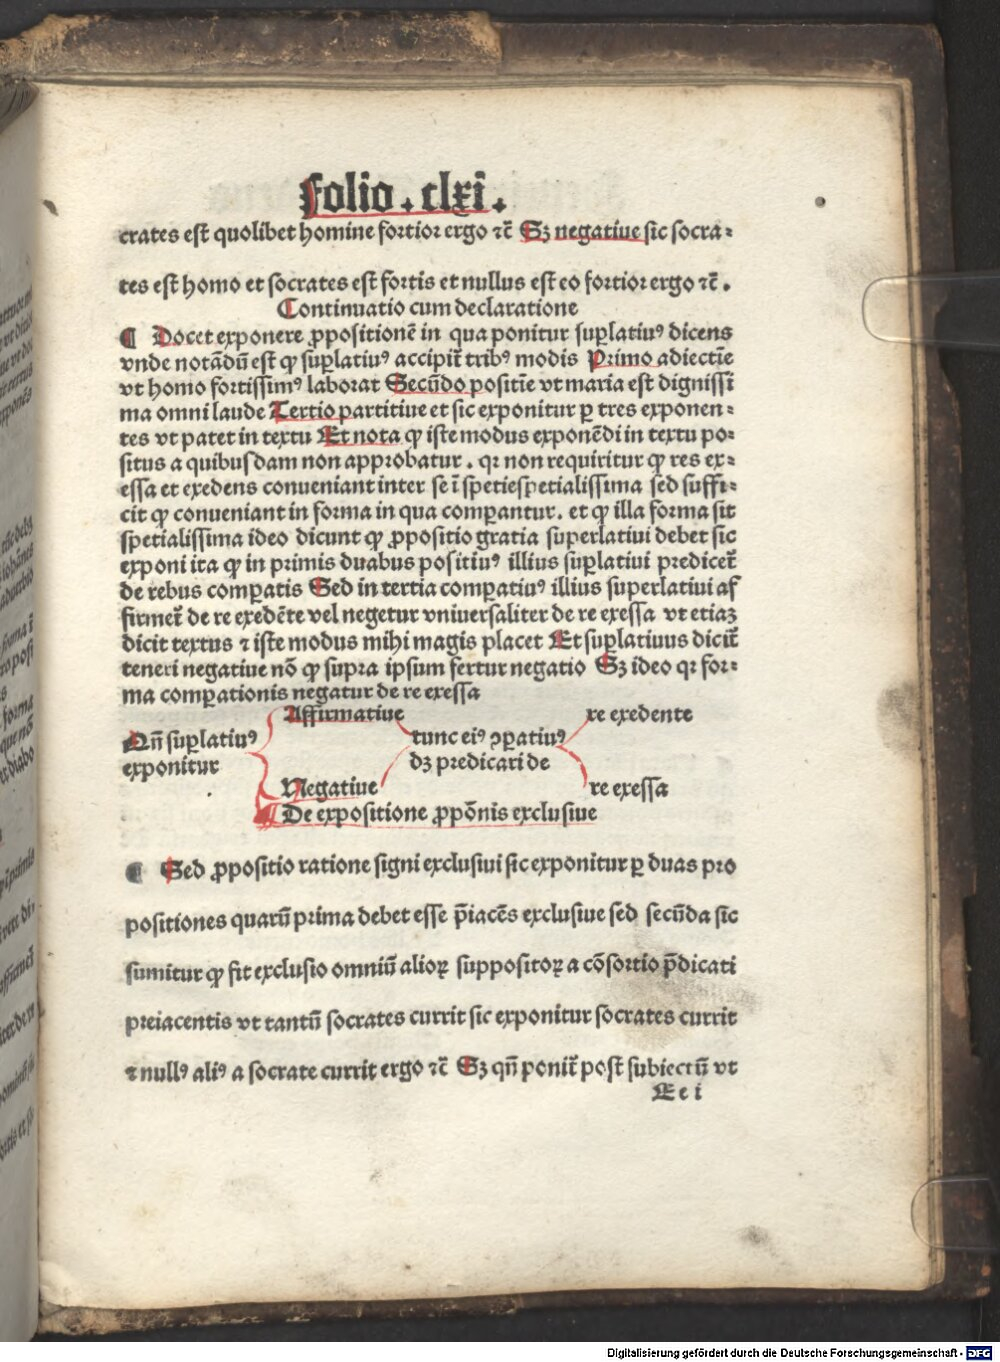 folio . clxi .
crates est quolibet homine fortior ergo ⁊c̄ Sʒ negatiue sic socra⸗
tes est homo et socrates est fortis et nullus est eo fortior ergo ⁊c̄ .
Continuatio cum declaratione
¶ Docet exponere ꝓpositionē in qua ponitur suꝑlatiuꝰ dicens
vnde notādū est ꝙ suꝑlatiuꝰ accipit̄ tribꝰ modis Primo adiectiē
vt homo fortissimꝰ laborat Secūdo positiē vt maria est dignissi
ma omni laude Tertio partitiue et sic exponitur ꝑ tres exponen⸗
tes vt patet in textu Et nota ꝙ iste modus exponēdi in textu po⸗
situs a quibusdam non approbatur . qꝛ non requiritur ꝙ res ex⸗
essa et exedens conueniant inter se ī spetiespetialissima sed suffi⸗
cit ꝙ conueniant in forma in qua comꝑantur . et ꝙ illa forma sit
spetialissima ideo dicunt ꝙ ꝓpositio gratia superlatiui debet sic
exponi ita ꝙ in primis duabus positiuꝰ illius suꝑlatiui predicet̄
de rebus comꝑatis Sed in tertia comꝑatiuꝰ illius superlatiui af
firmet̄ de re exedēte vel negetur vniuersaliter de re exessa vt etiaʒ
dicit textus ⁊ iste modus mihi magis placet Et suꝑlatiuus dicit̄
teneri negatiue nō ꝙ supra ipsum fertur negatio Sʒ ideo qꝛ for⸗
ma comꝑationis negatur de re exessa
Affirmatiue
re exedente
Qn̄ suꝑlatiuꝰ
exponitur
tunc eiꝰ ↄꝑatiuꝰ
dʒ predicari de
Negatiue
re exessa
¶ De expositione ꝓpōnis exclusiue
¶ Sed ꝓpositio ratione signi exclusiui sic exponitur ꝑ duas pro
positiones quarū prima debet esse p̄iacēs exclusiue sed secūda sic
sumitur ꝙ fit exclusio omniū alioꝝ suppositoꝝ a cōsortio p̄dicati
preiacentis vt tantū socrates currit sic exponitur socrates currit
⁊ nullꝰ aliꝰ a socrate currit ergo ⁊c̄ Sʒ qn̄ ponit̄ post subiectū vt
Ee i
Digitalisierung gefördert durch die Deutsche Forschungsgemeinschaft - DFG